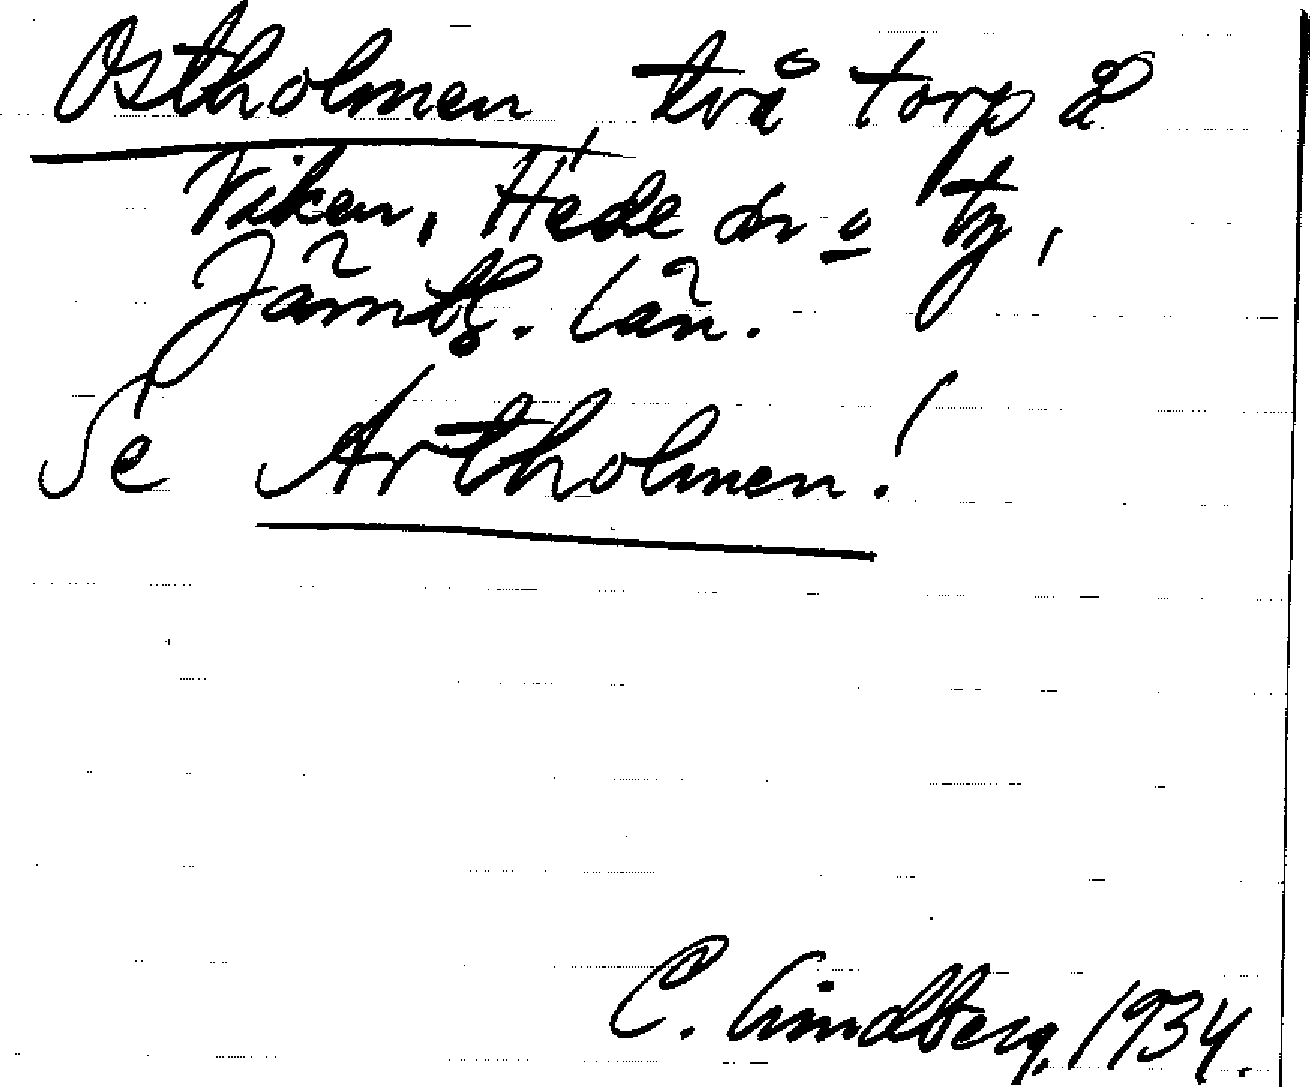 Ostholmen, två torp å
Viken, Hede sn o tg,
Jämtl. län.
Se Artholmen!
C. Lindberg, 1934.